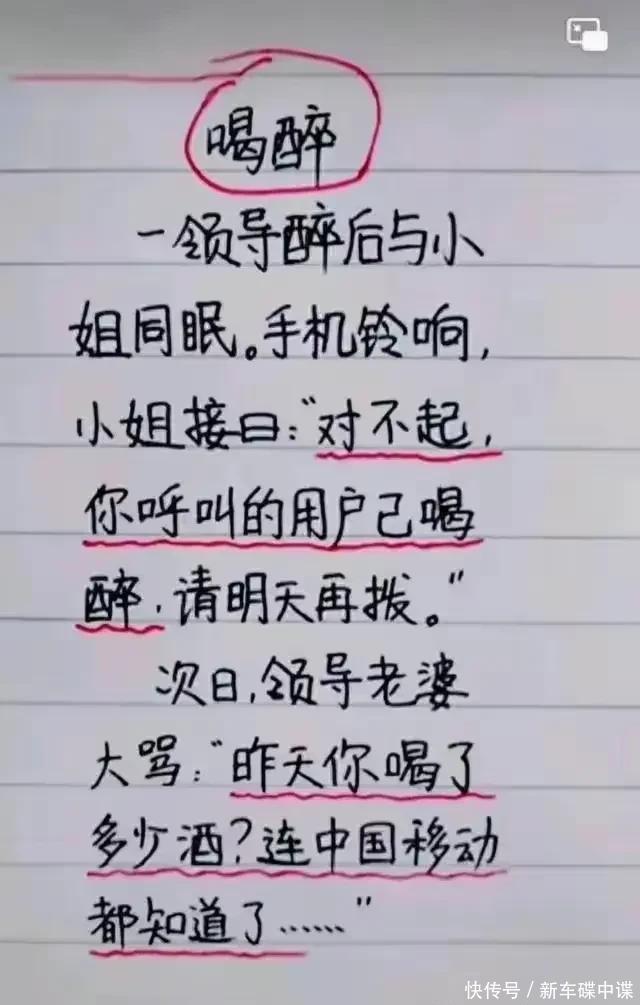 喝醉
一领导醉后与小
姐同眠。手机铃响，
小姐接曰：“对不起，
你呼叫的用户已喝
醉，请明天再拨。”
次日，领导老婆
大骂：“昨天你喝了
多少酒？连中国移动
都知道了……”
快传号／新车碟中谍